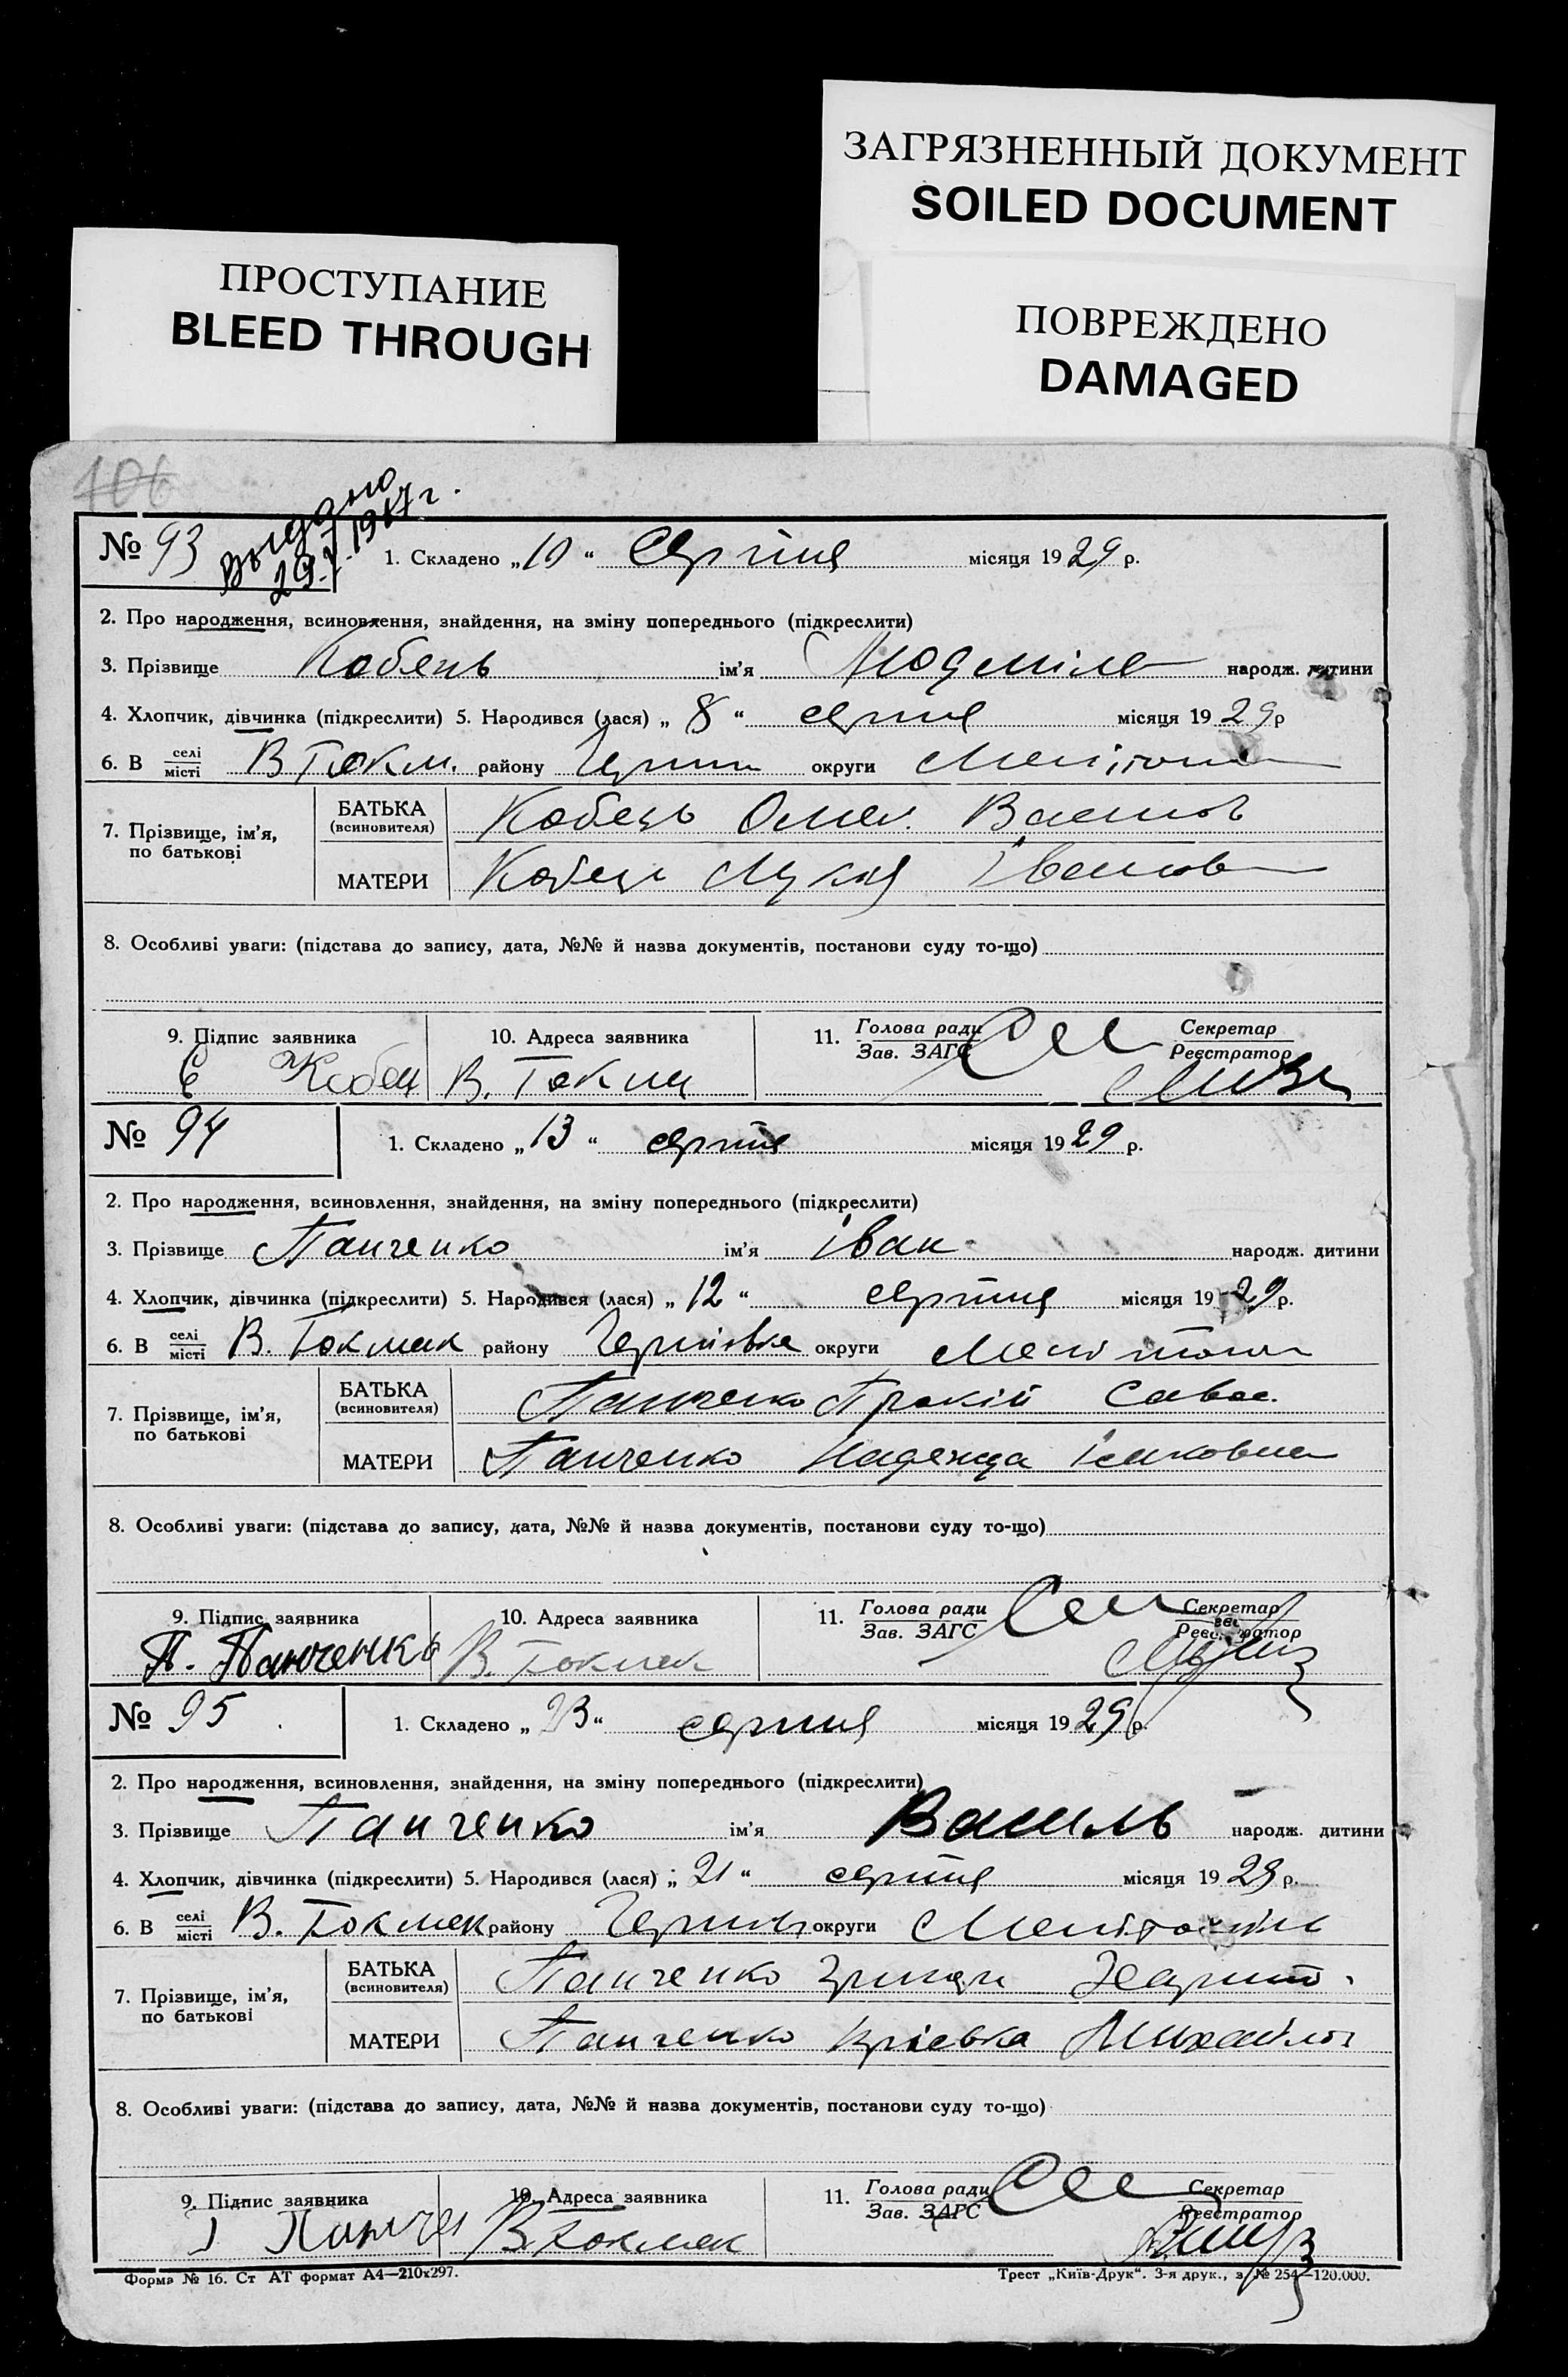 ЗАГРЯЗНЕННЫЙ ДОКУМЕНТ
SOILED DOCUMENT
ПРОСТУПАНИЕ
BLEED THROUGH
ПОВРЕЖДЕНО
DAMAGED
106
Выдано
29.7.1947 г.
№ 93 1. Складено „10“ Серпня місяця 1929 р.
2. Про народження, всиновлення, знайдення, на зміну попереднього (підкреслити)
3. Прізвище Кобець ім'я Людміла народж. дитини
4. Хлопчик, дівчинка (підкреслити) 5. Народився (лася) „8“ серпня місяця 1929 р
6. В селі місті В Токм. району округи
7. Прізвище, ім'я, по батькові БАТЬКА (всиновителя) Кобець Омел.
МАТЕРИ Кобець
8. Особливі уваги: (підстава до запису, дата, №№ й назва документів, постанови суду то-що)
9. Підпис заявника 10. Адреса заявника 11. Голова ради Зав. ЗАГС Секретар Реєстратор
Кобец В. Токма
№ 94 1. Складено „13“ серпня місяця 1929 р.
2. Про народження, всиновлення, знайдення, на зміну попереднього (підкреслити)
3. Прізвище Панченко ім'я Іван народж. дитини
4. Хлопчик, дівчинка (підкреслити) 5. Народився (лася) „12“ серпня місяця 1929 р.
6. В селі місті В. Токмак району округи
7. Прізвище, ім'я, по батькові БАТЬКА (всиновителя) Панченко Савов.
МАТЕРИ Панченко Надежда Ісаковна
8. Особливі уваги: (підстава до запису, дата, №№ й назва документів, постанови суду то-що)
9. Підпис заявника 10. Адреса заявника 11. Голова ради Зав. ЗАГС Секретар Реєстратор
П. Панченко В. Токмак
№ 95 1. Складено „23“ серпня місяця 1929 р.
2. Про народження, всиновлення, знайдення, на зміну попереднього (підкреслити)
3. Прізвище Панченко ім'я Василь народж. дитини
4. Хлопчик, дівчинка (підкреслити) 5. Народився (лася) „21“ серпня місяця 1929 р.
6. В селі місті В. Токмак району округи
7. Прізвище, ім'я, по батькові БАТЬКА (всиновителя) Панченко
МАТЕРИ Панченко
8. Особливі уваги: (підстава до запису, дата, №№ й назва документів, постанови суду то-що)
9. Підпис заявника 10. Адреса заявника 11. Голова ради Зав. ЗАГС Секретар Реєстратор
В. Токмак
Форма № 16. Ст АТ формат А4—210х297. Трест „Київ-Друк“. 3-я друк., з. № 254—120.000.